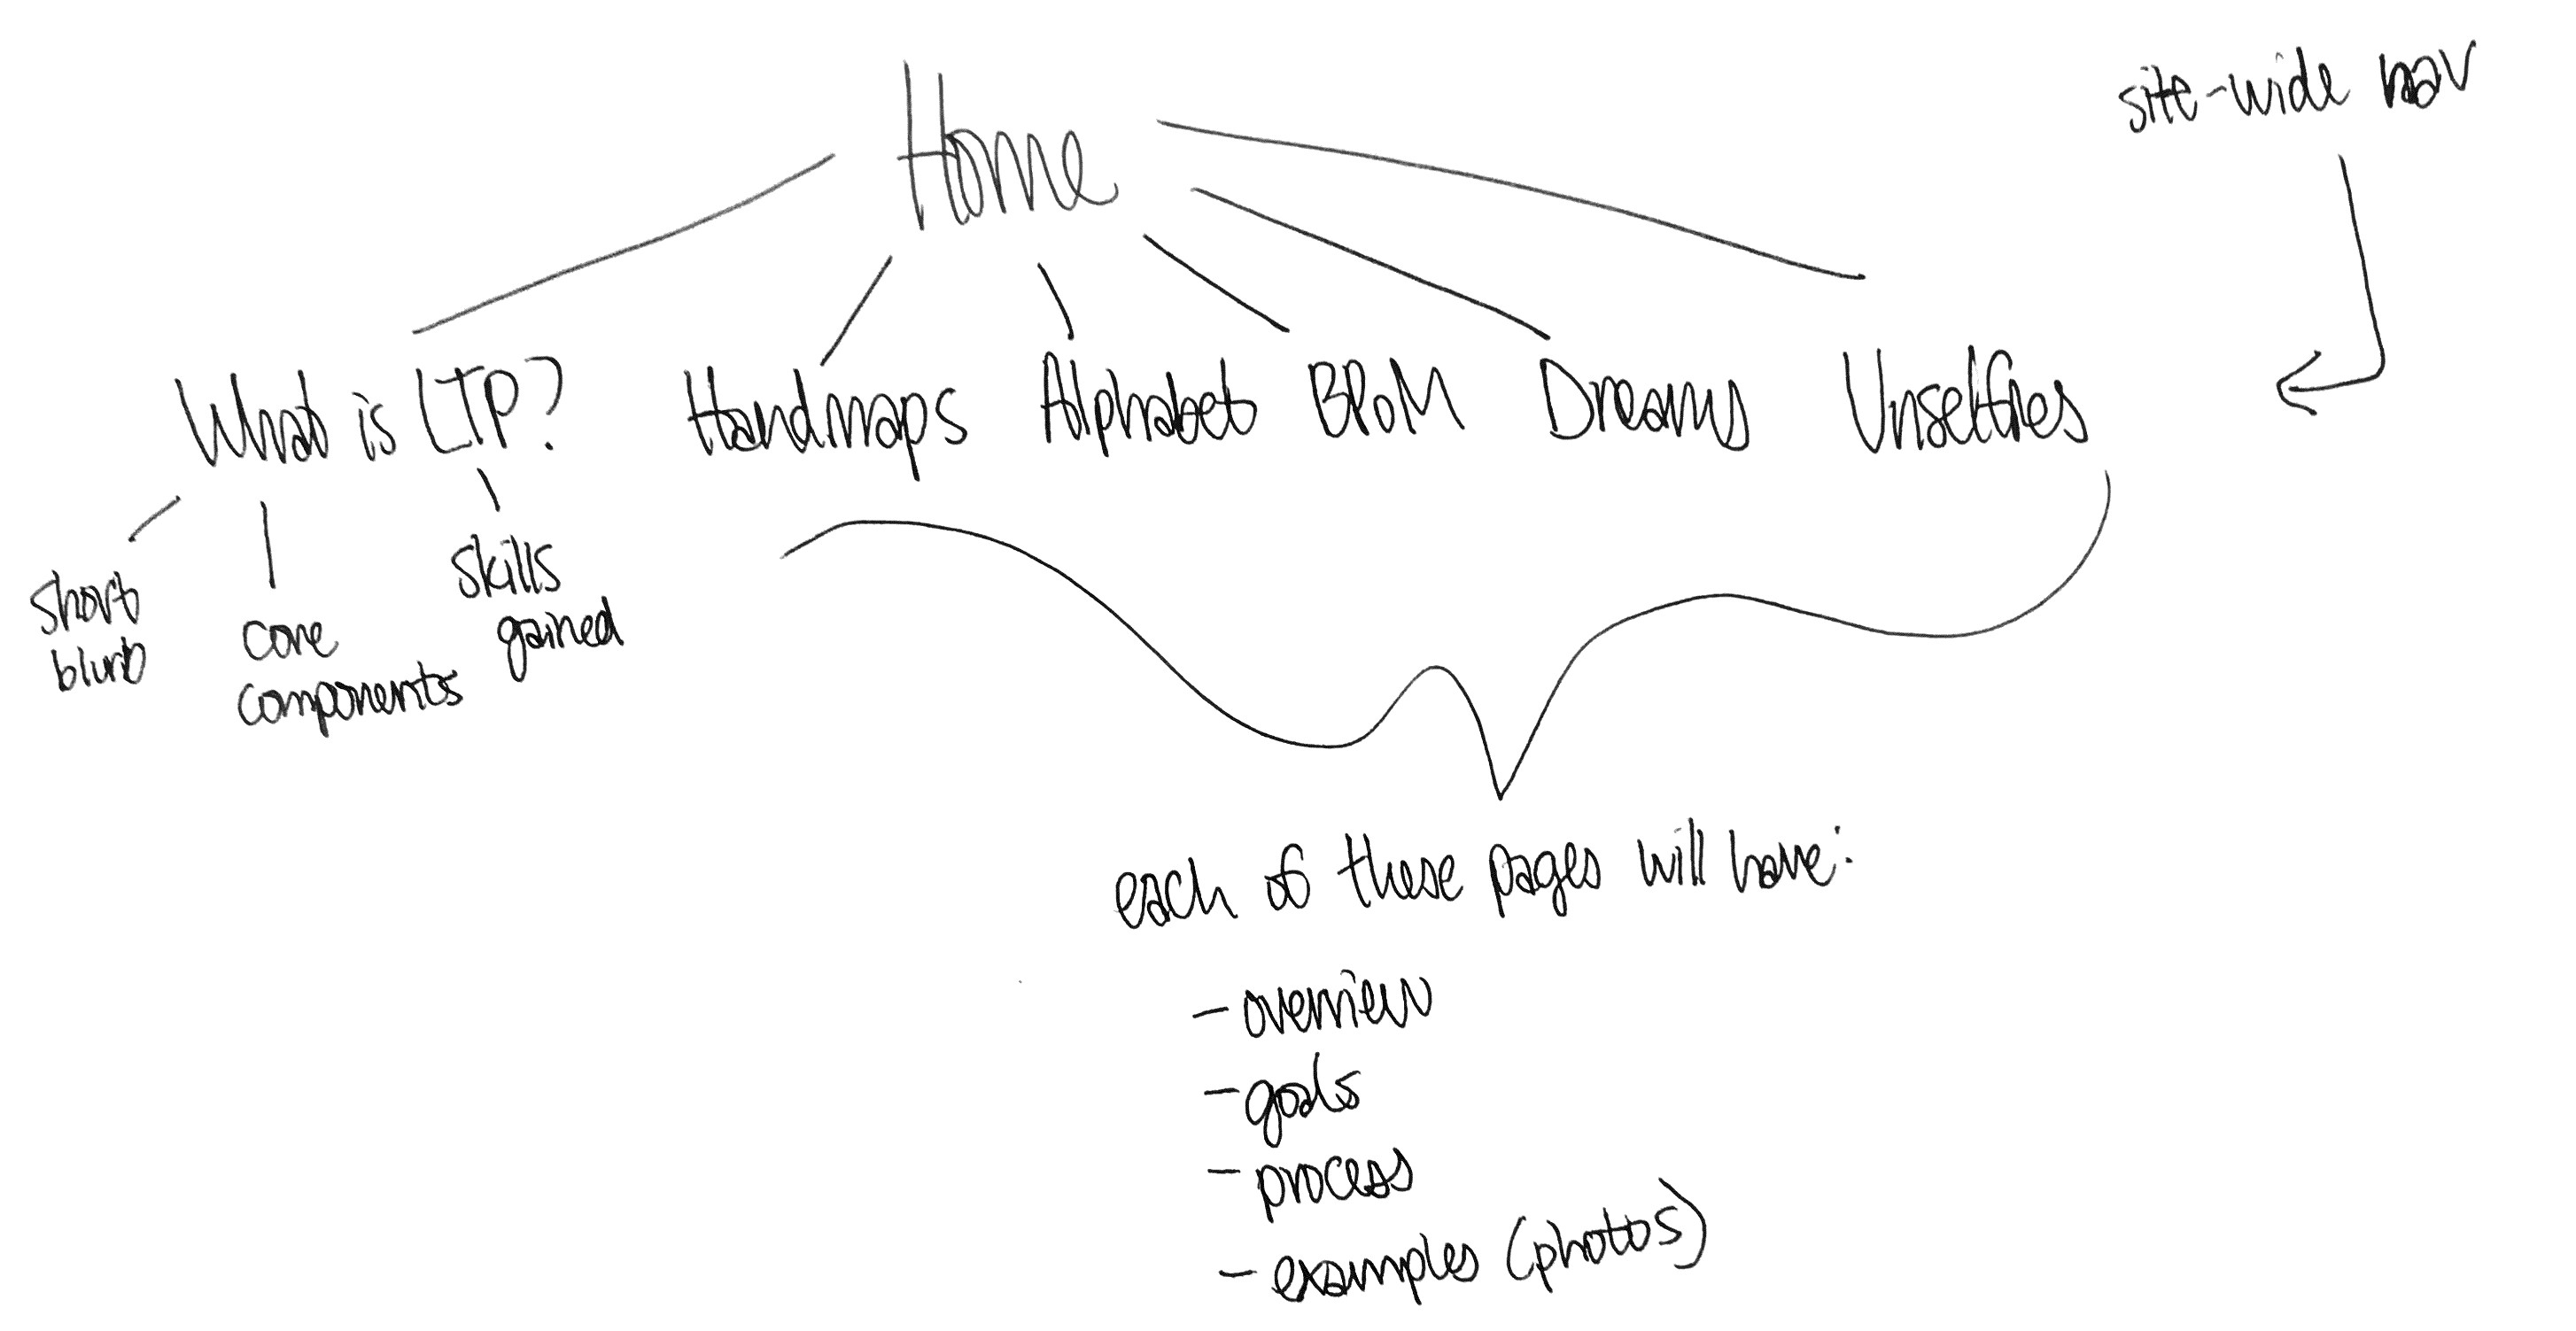 Home
site-wide nav
What is LTP? Handmaps Alphabet BPoM Dreams Unselfies
short
blurb
core
components
skills
gained
each of these pages will have:
- overview
- goals
- process
- examples (photos)